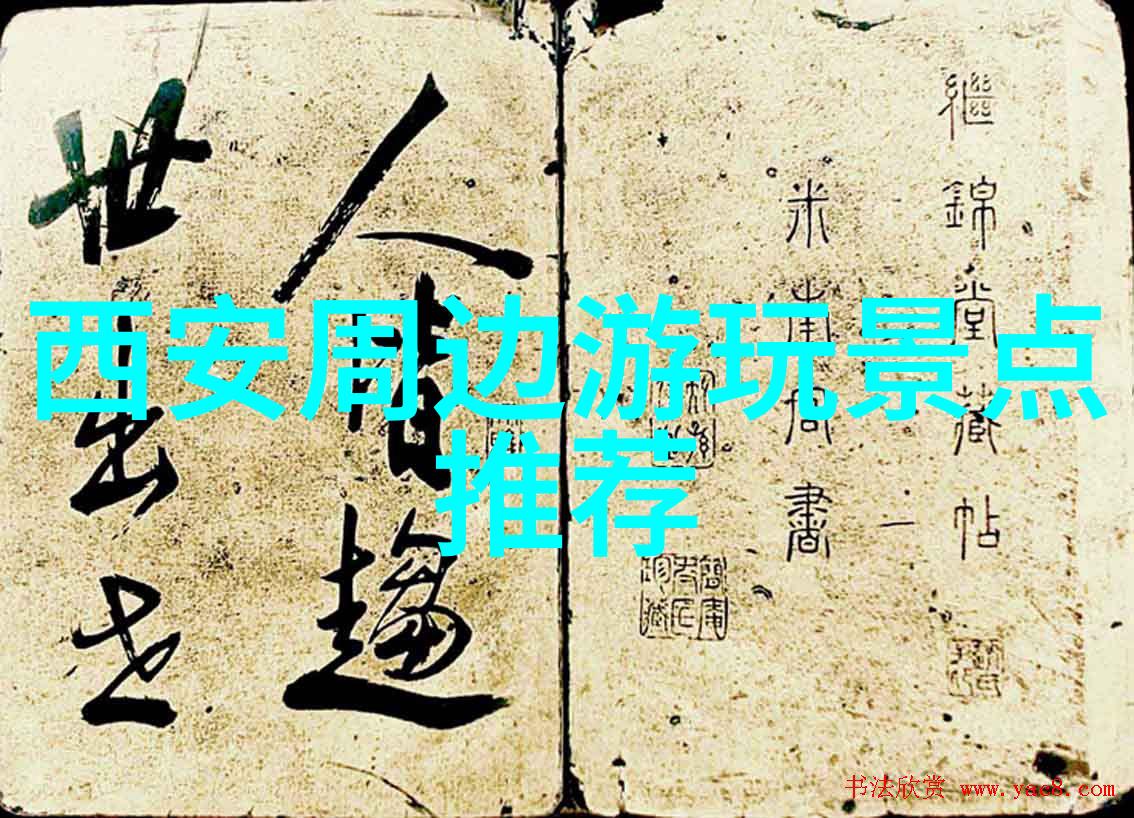 西安周边游玩景点
推荐
繼錦堂藏帖
米南宮書
一
人皆趨
世出世
书法欣赏 www.yac8.com